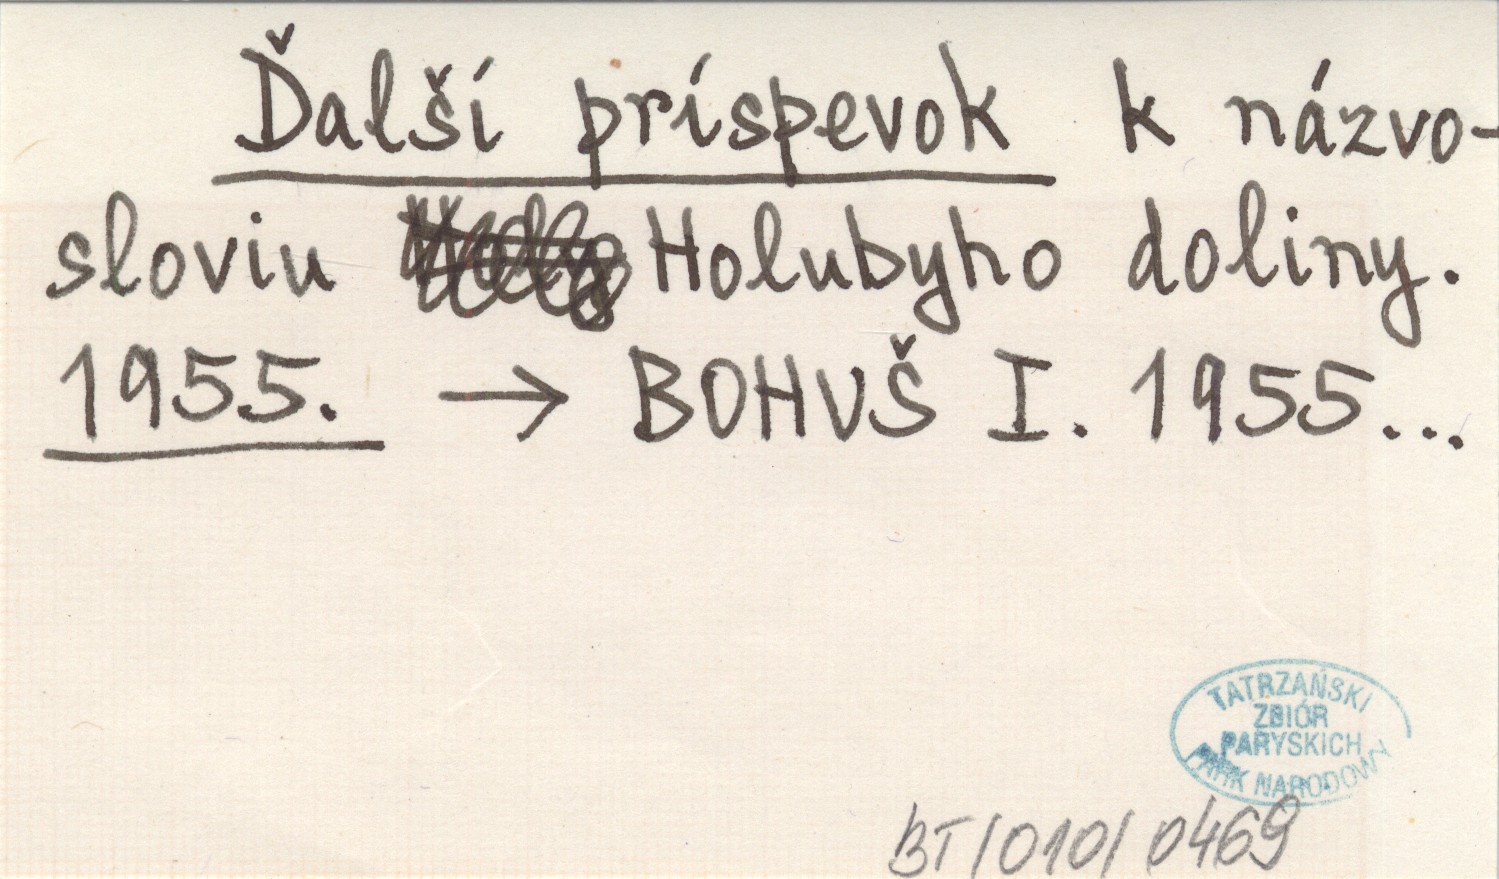 Ďalší príspevok k názvo-
sloviu Holubyho doliny.
1955. → BOHUŠ I. 1955...
TATRZAŃSKI
ZBIÓR
PARYSKICH
PARK NARODOWY
BT/010/0469